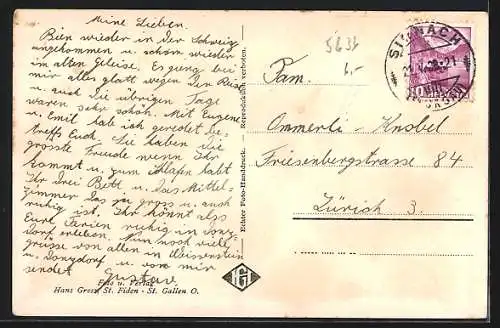 Meine Lieben.
Bin wieder in der Schweiz
angekommen u. schon wieder
im alten Geleise. Es ging bei
mir alles glatt wegen den Reise
u. auch die übrigen Tage
waren sehr schön. Mit Eugene
u. Emil hab ich geredet be-
treffs Euch. Sie haben die
grösste Freude wenn Ihr
kommt u. zum schlafen habt
Ihr drei Bett u. das Mittel-
Zimmer das ja gross u. auch
ruhig ist. Ihr könnt also
Eure Ferien ruhig in
dorf erleben. Nun noch viele
grüsse von allen in Weissenstein
u. u. von mir
sendet Gustav
Foto u. Verlag
Hans Gross, St. Fiden - St. Gallen O.
Echter Foto-Handdruck. Reproduktion verboten.
5633
6.-
SIRNACH
Fam.
Ommerli - Knobel
Friesenbergstrasse 84
Zürich 3.